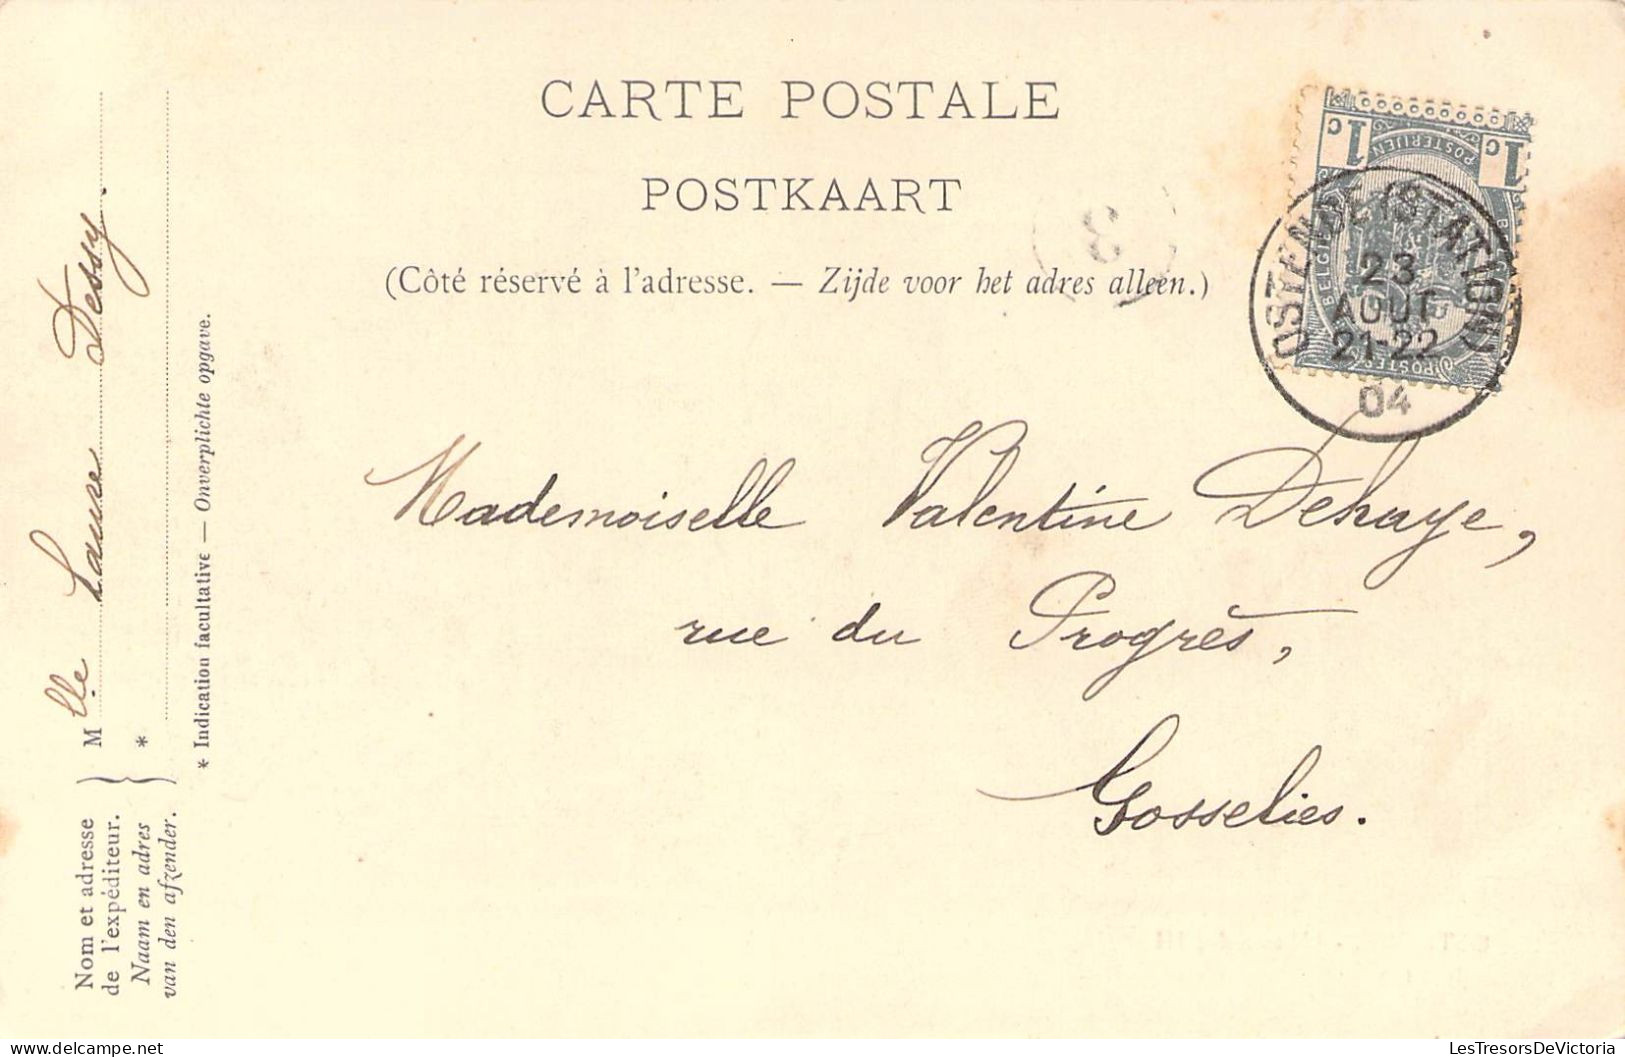 CARTE POSTALE
POSTKAART
(Côté réservé à l'adresse. — Zijde voor het adres alleen.)
3
1c 1c
POSTERIJEN
POSTES
OSTENDE (STATION)
23
AOUT
21-22
04
Mademoiselle Valentine Dehaye,
rue du Progrès,
Gosselies.
Nom et adresse
de l'expéditeur.
Naam en adres
van den afzender.
Mlle Laure Dessy.
*
* Indication facultative — Onverplichte opgave.
LesTresorsDeVictoria